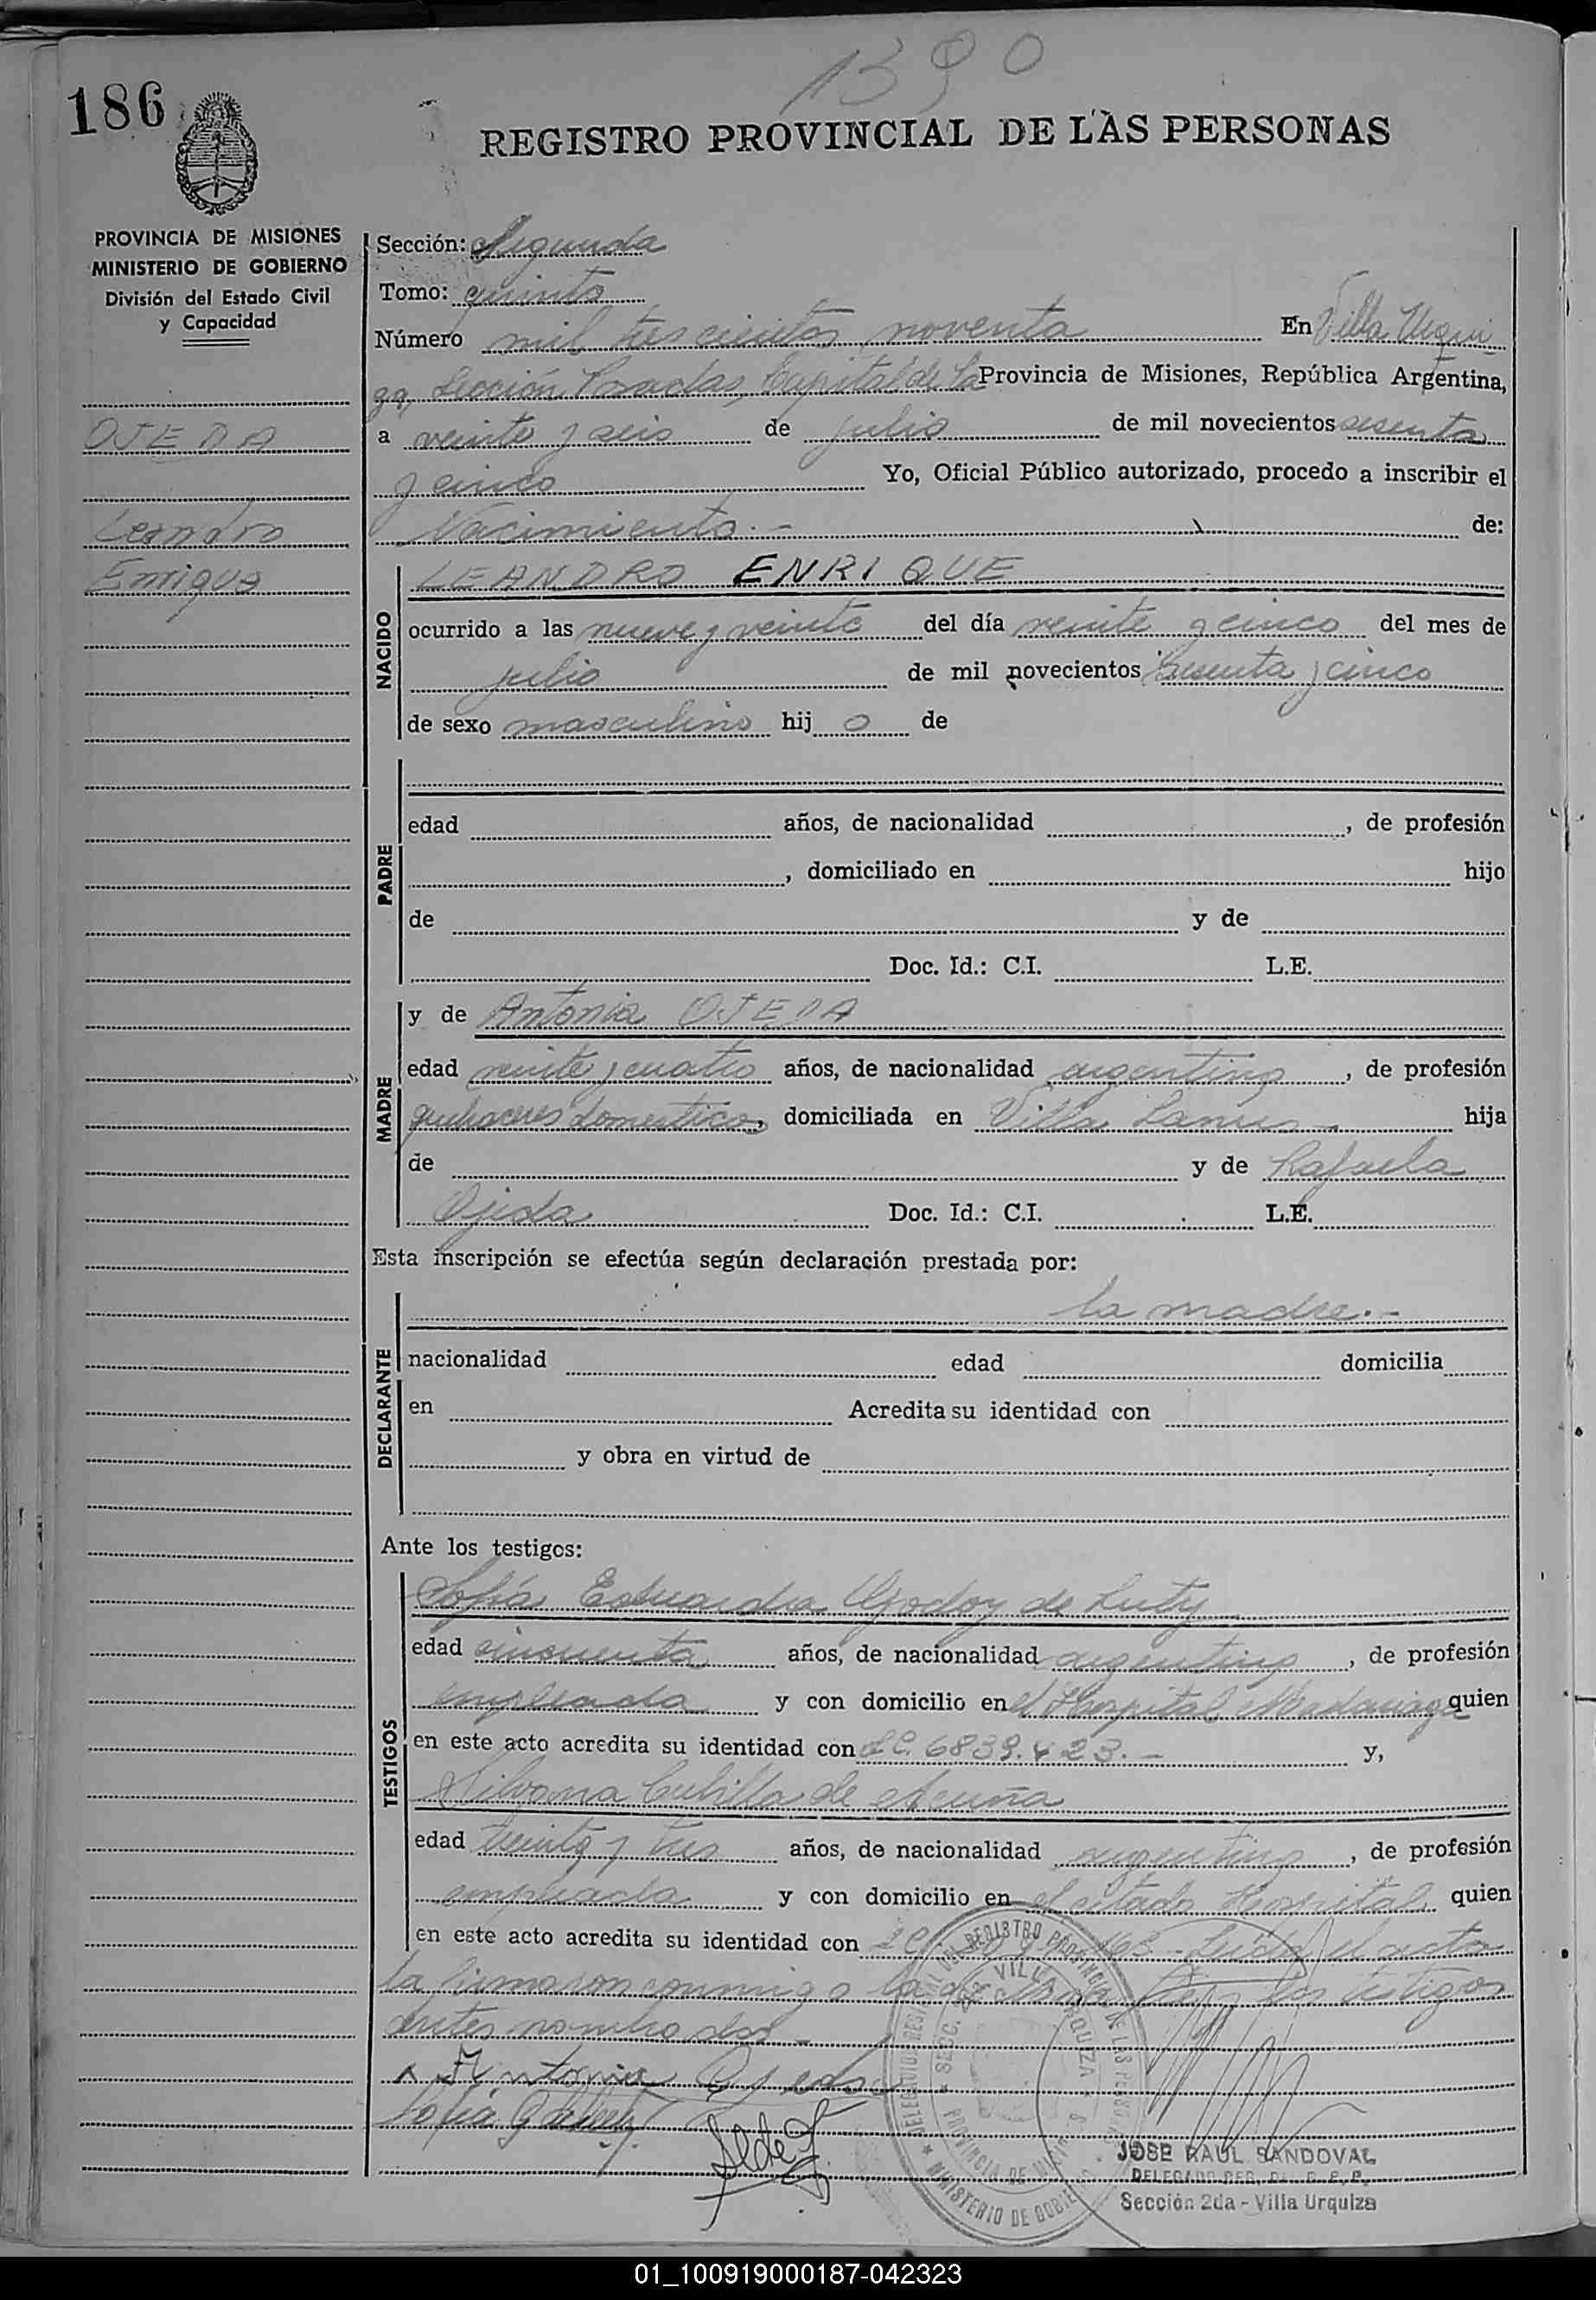 1390
186
REGISTRO PROVINCIAL DE LAS PERSONAS
PROVINCIA DE MISIONES
MINISTERIO DE GOBIERNO
División del Estado Civil
y Capacidad
OJEDA
Leandro
Enrique
Sección: Segunda
Tomo: quinto
Número mil trescientos noventa En Villa Urqui
za, Sección Posadas, Capital de la Provincia de Misiones, República Argentina,
a veinte y seis de julio de mil novecientos sesenta
y cinco Yo, Oficial Público autorizado, procedo a inscribir el
Nacimiento.- de:
NACIDO
LEANDRO ENRIQUE
ocurrido a las nueve y veinte del día veinte y cinco del mes de
julio de mil novecientos sesenta y cinco
de sexo masculino hij o de
PADRE
edad años, de nacionalidad , de profesión
, domiciliado en hijo
de y de
Doc. Id.: C.I. L.E.
MADRE
y de Antonia OJEDA
edad veinte y cuatro años, de nacionalidad argentina, de profesión
quehaceres domesticos, domiciliada en Villa Lanus- hija
de y de Rafaela
Ojeda Doc. Id.: C.I. L.E.
Esta inscripción se efectúa según declaración prestada por:
DECLARANTE
la madre.-
nacionalidad edad domicilia
en Acredita su identidad con
y obra en virtud de
Ante los testigos:
TESTIGOS
Sofía Estuarda Godoy de Luty
edad cincuenta años, de nacionalidad argentina, de profesión
empleada y con domicilio en el Hospital Madariaga quien
en este acto acredita su identidad con LC. 6839.423.- y,
Silvana Cubilla de Acuña
edad treinta y tres años, de nacionalidad argentina, de profesión
empleada y con domicilio en el citado Hospital, quien
en este acto acredita su identidad con LC. Leida el acta
la firmaron conmigo la los testigos
antes nombrados.-
Antonia Ojeda
Sofia G de Luty
JOSE RAUL SANDOVAL
DELEGADO REG. R. P. P.
Sección 2da - Villa Urquiza
01_100919000187-042323